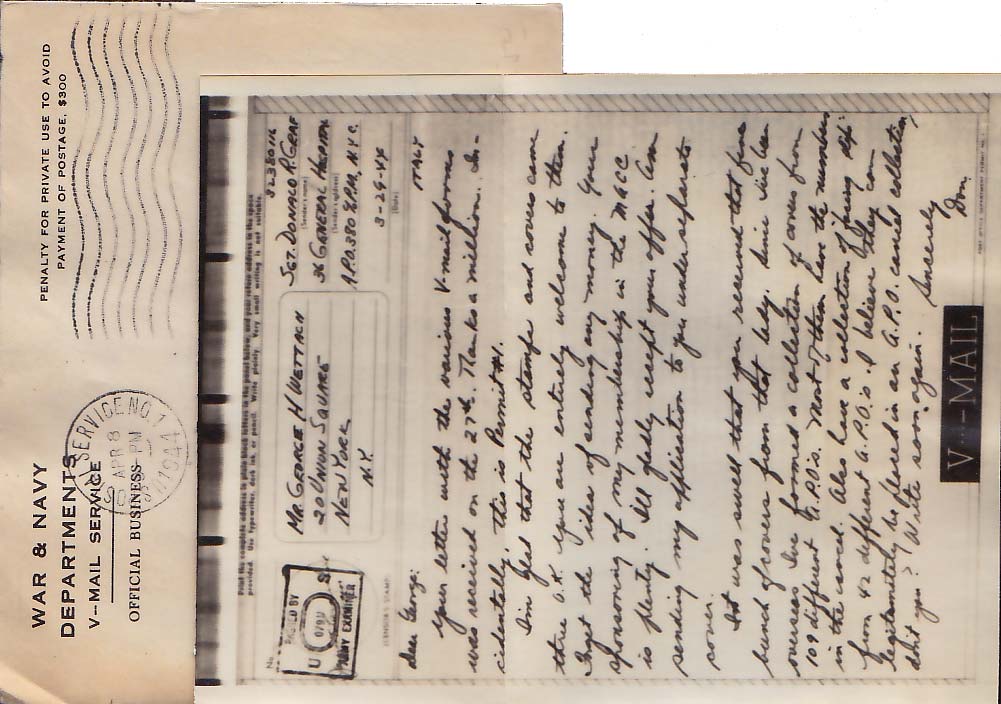 WAR & NAVY
DEPARTMENTS
V-MAIL SERVICE
OFFICIAL BUSINESS
PENALTY FOR PRIVATE USE TO AVOID
PAYMENT OF POSTAGE, $300
SERVICE NO 1
APR 8
PM
1944
Print the complete address in plain block letters in the panel below, and your return address in the space
provided. Use typewriter, dark ink, or pencil. Write plainly. Very small writing is not suitable.
No.
PASSED BY
U S
0790
ARMY EXAMINER
(CENSOR'S STAMP)
MR. GEORGE H WETTACH
20 UNION SQUARE
NEW YORK
N.Y.
32380116
SGT. DONALD R. GRAF
(Sender's name)
36 GENERAL HOSPITAL
(Sender's address)
A.P.O. 380 % P.M. N.Y.C.
3-29-44
(Date)
ITALY
Dear George:
Your letter with the various V-mail forms
was received on the 27th. Thanks a million. In-
cidentally, this is Permit #1.
I'm glad that the stamps and covers came
thru O.K. You are entirely welcome to them.
Forget the idea of sending any money. Your
sponsoring of my membership in the MACC
is plenty. I'll gladly accept your offer. Am
sending my application to you under separate
cover.
It was swell that you received that fine
bunch of covers from that lady. Since I've been
overseas I've formed a collection of covers from
109 different A.P.O's. Most of them have the numbers
in the cancel. Also have a collection of
from 42 different A.P.O.'s. I believe they can
legitimately be placed in an A.P.O. cancel collection,
don't you? Write soon again.
Sincerely
Don.
V···—MAIL